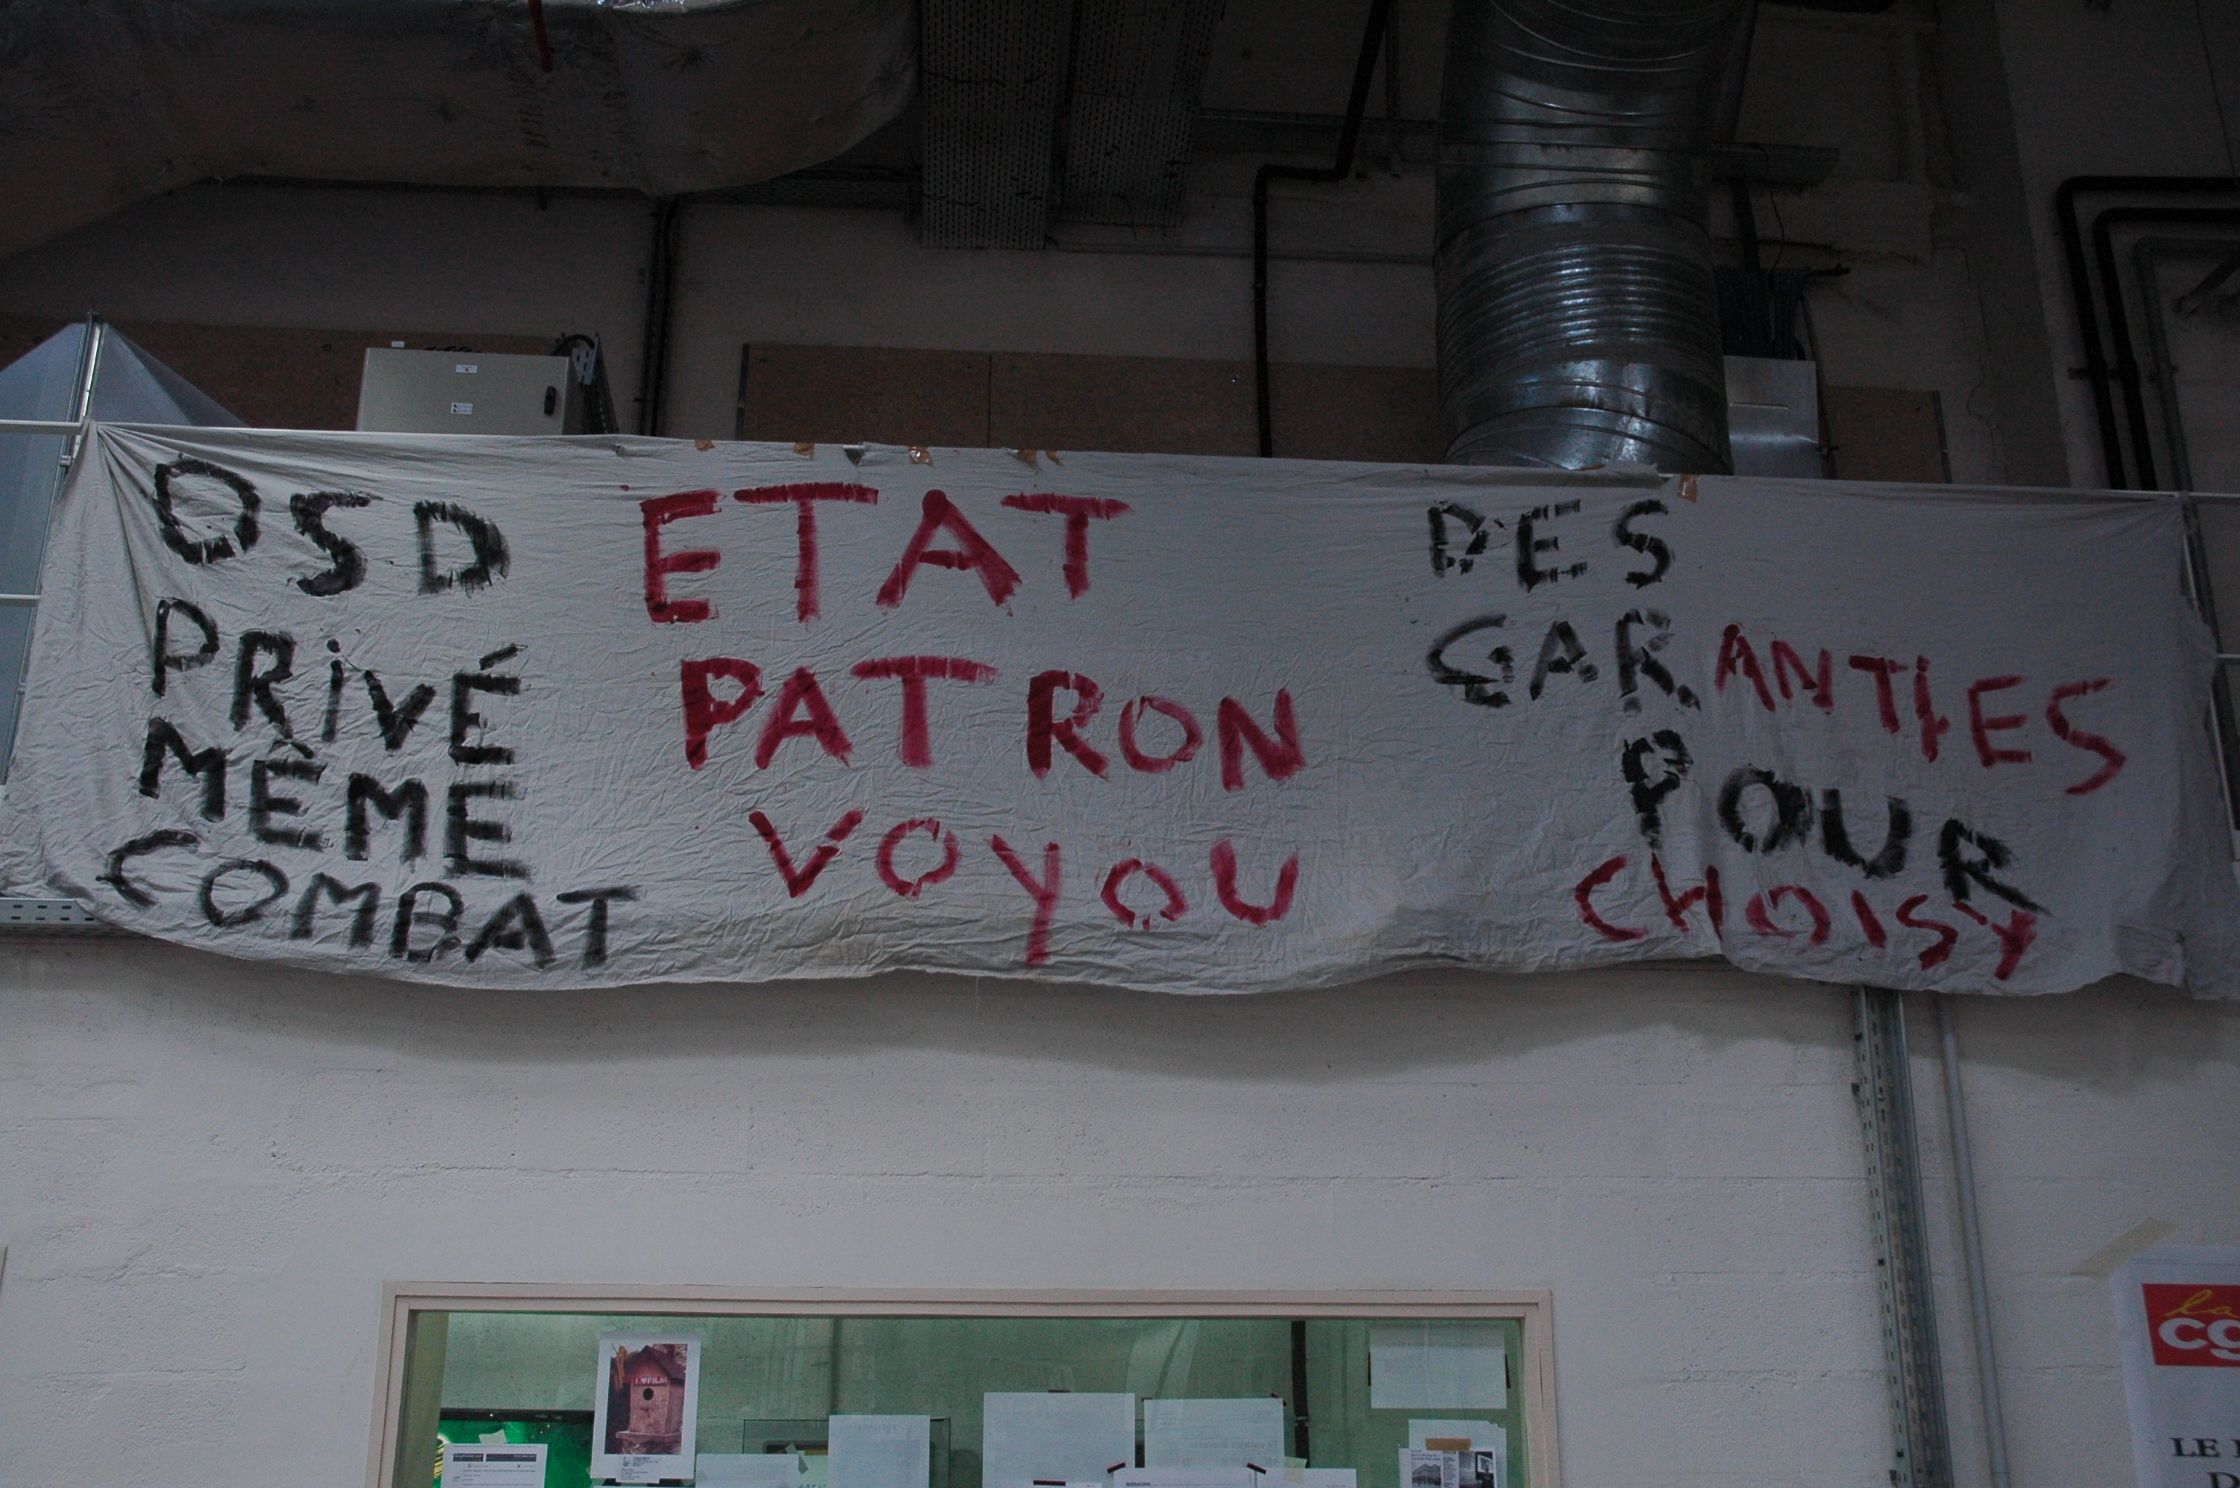 OSD
PRIVÉ
MÊME
COMBAT
ETAT
PATRON
VOYOU
DES
GARANTIES
POUR
CHOISY
la
cg
LE